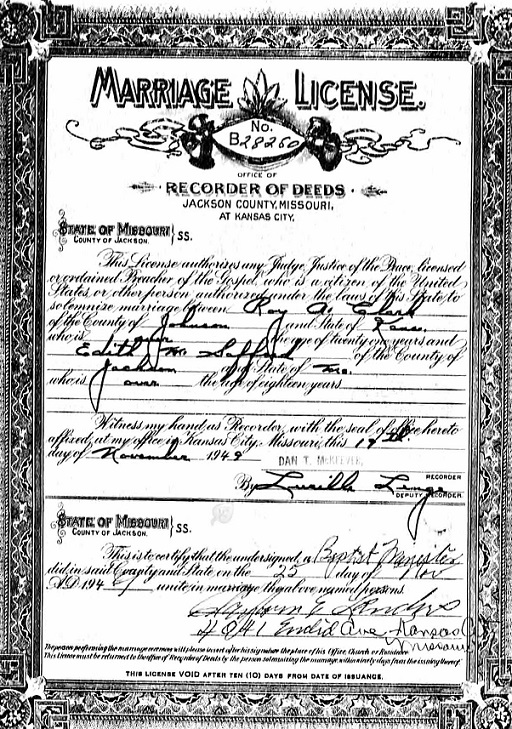 MARRIAGE LICENSE.
No.
B28260
OFFICE OF
RECORDER OF DEEDS
JACKSON COUNTY, MISSOURI,
AT KANSAS CITY.
STATE OF MISSOURI
COUNTY OF JACKSON. } SS.
This License authorizes any Judge, Justice of the Peace, licensed
or ordained Preacher of the Gospel, who is a citizen of the United
States, or other person authorized under the laws of this State to
solemnize marriage between Roy A. Clark
of the County of Johnson and State of Kans.
who is over the age of twenty one years and
Edith M. Safford of the County of
Jackson and State of Mo.
who is over the age of eighteen years
Witness my hand as Recorder, with the seal of office hereto
affixed, at my office in Kansas City, Missouri, this 19th
day of November 1949
DAN T. McKEEVER,
RECORDER
By Lucille
DEPUTY RECORDER.
STATE OF MISSOURI
COUNTY OF JACKSON. } SS.
This is to certify that the undersigned, a Baptist Minister
did in said County and State, on the 25 day of Nov
A.D. 194 unite in marriage the above named persons.
4041 Euclid Ave, Kansas
Missouri
The person performing the marriage ceremony will please insert after his signature the place of his Office, Church or Residence
This License must be returned to the office of Recorder of Deeds by the person solemnizing the marriage within ninety days from the issuing thereof
THIS LICENSE VOID AFTER TEN (10) DAYS FROM DATE OF ISSUANCE.